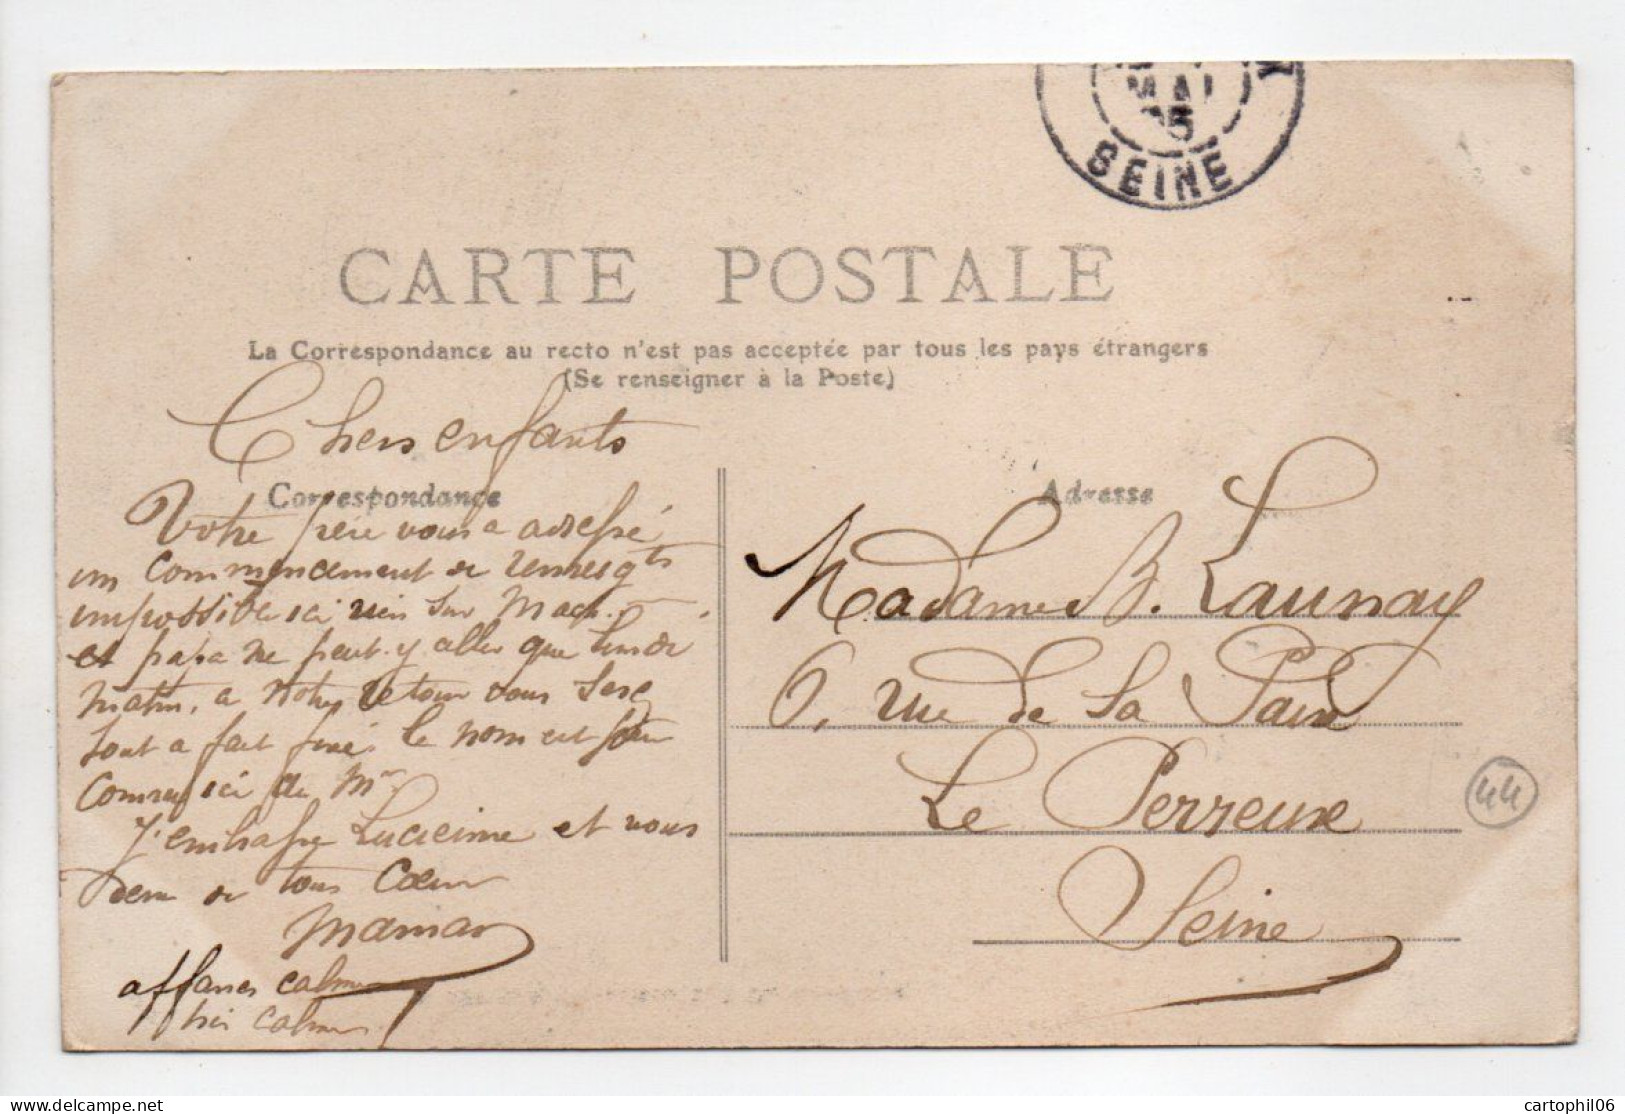 MAI
05
SEINE
Y
CARTE POSTALE
La Correspondance au recto n'est pas acceptée par tous les pays étrangers
(Se renseigner à la Poste)
Chers enfants
Correspondance
Adresse
Votre père vous a adressé
un commencement de renseigts
impossible ici rien sur Mach.
et papa ne peut y aller que lundi
matin, a notre retour vous serez
tout a fait fixés le nom est
comme ici de Mr
J'embrasse Lucienne et vous
deux de tous Coeur
Maman
affaires calmes
très calmes
Madame B. Launay
6, rue de la Paix
Le Perreux
Seine
44
delcampe.net
cartophil06